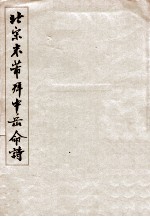 北宋米芾拜中岳命詩